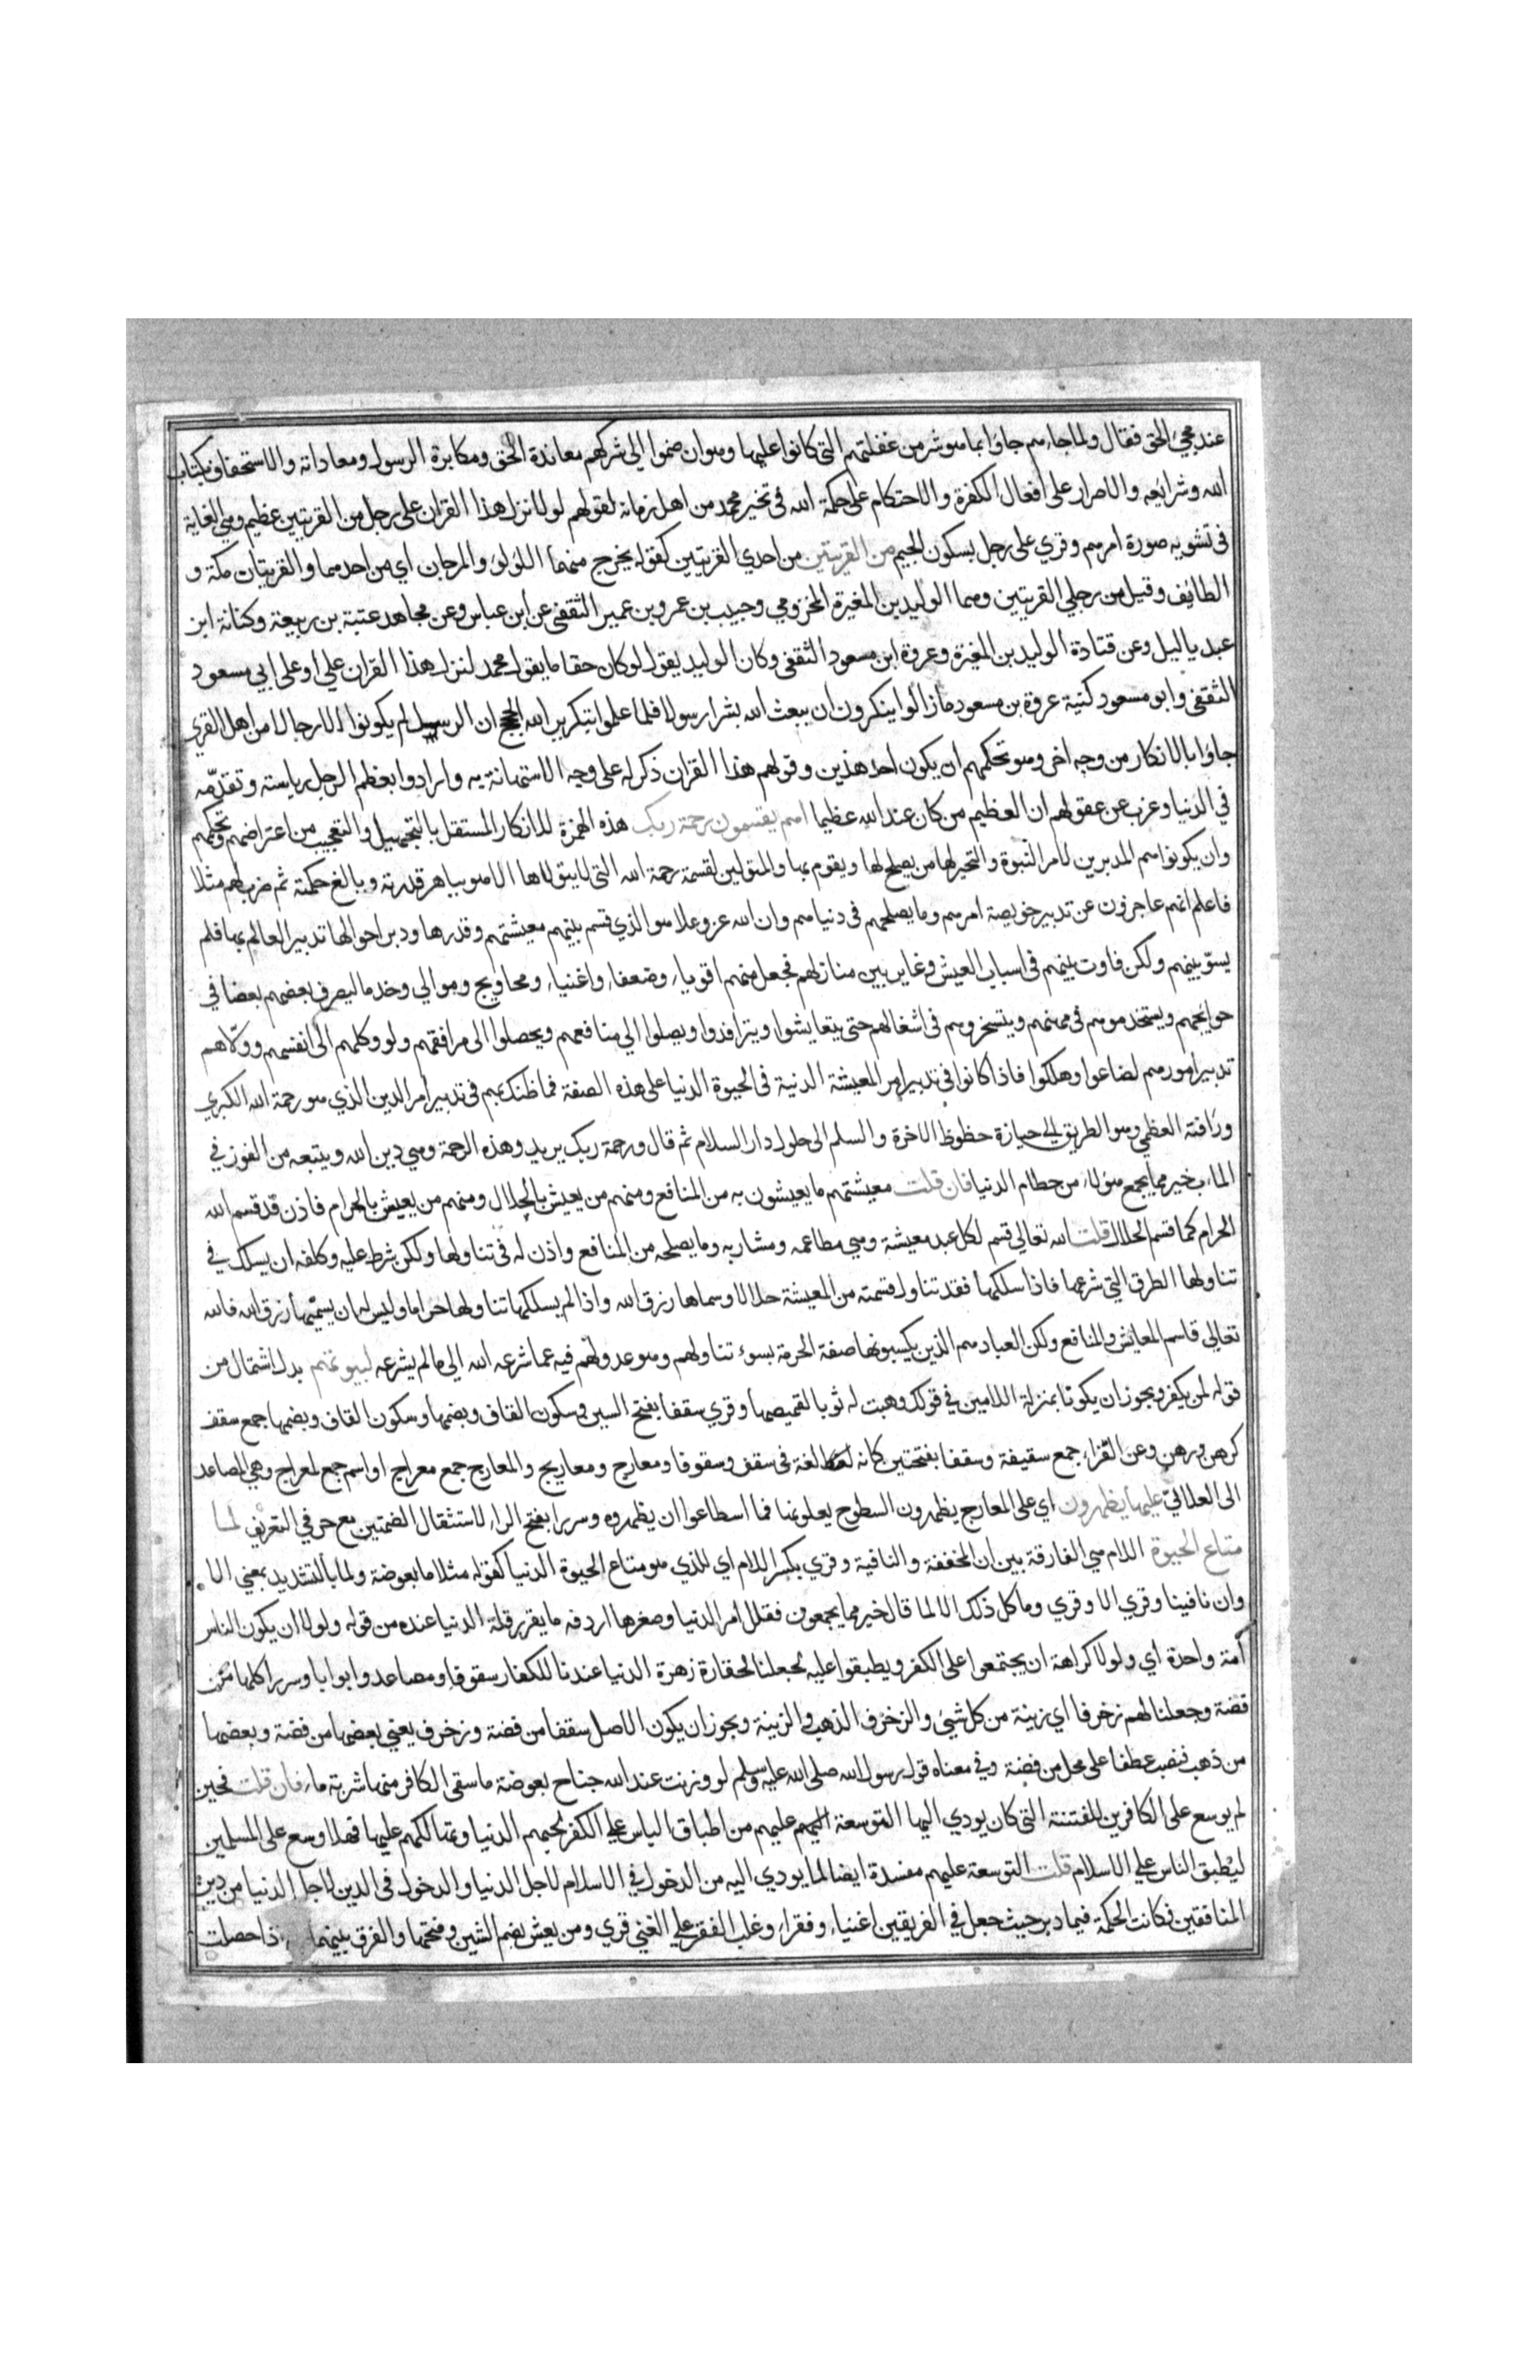 عند مجئ الحق فقال ولما جاءهم جاؤا بما هو شر من غفلتهم التى كانوا عليها وهو ان ضموا الى شركهم معاندة الحق ومكابرة الرسول ومعاداته والاستخفاف بكتاب
الله وشرائعه والاصرار على افعال الكفرة والاحتكام على حكمة الله فى تخير محمد من اهل زمانه لقولهم لولا نزل هذا القران على رجل من القريتين عظيم وهي الغاية
فى تشويه صورة امرهم وقري على رجل بسكون الجيم من القريتين من احدي القريتين كقوله يخرج منهما اللؤلؤ والمرجان اي من احدهما والقريتان مكة و
الطائف وقيل من رجلي القريتين وهما الوليد بن المغيرة المخزومي وحبيب بن عمرو بن عمير الثقفى عن ابن عباس وعن مجاهد عتبة بن ربيعة وكنانة ابن
عبد ياليل وعن قتادة الوليد بن المغيرة وعروة ابن مسعود الثقفى وكان الوليد يقول لو كان حقا ما يقول محمد لنزل هذا القران علي او على ابي مسعود
الثقفى وابو مسعود كنية عروة بن مسعود ما زالوا ينكرون ان يبعث الله بشرا رسولا فلما علموا بتكرير الله الحجج ان الرسل لم يكونوا الا رجالا من اهل القري
جاؤا بالانكار من وجه اخر وهو تحكمهم ان يكون احد هذين وقولهم هذا القران ذكر له على وجه الاستهانة به وارادوا بعظم الرجل رياسته وتقدّمه
في الدنيا وعزب عن عقولهم ان العظيم من كان عند الله عظيما اهم يقسمون رحمة ربك هذه الهمزة للانكار المستقل بالتجهيل والتعجيب من اعتراضهم وتحكمهم
وان يكونوا هم المدبرين لامر النبوة والتخير لها من يصلح لها ويقوم بها والمتولين لقسمة رحمة الله التى لا يتولاها الا هو بباهر قدرته وبالغ حكمته ثم ضرب لهم مثلا
فاعلم انهم عاجزون عن تدبير خويصة امرهم وما يصلحهم فى دنياهم وان الله عز وعلا هو الذي قسم بينهم معيشتهم وقدرها ودبر احوالها تدبير العالم بها فلم
يسوّ بينهم ولكن فاوت بينهم فى اسباب العيش وغاير بين منازلهم فجعل منهم اقوياء وضعفاء واغنياء ومحاويج وموالي وخدما ليصرف بعضهم بعضا في
حوائجهم ويستخدموهم فى مهنهم ويتسخروهم فى اشغالهم حتى يتعايشوا ويترافدوا ويصلوا الي منافعهم ويحصلوا الى مرافقهم ولو وكلهم الى انفسهم وولّاهم
تدبير امورهم لضاعوا وهلكوا فاذا كانوا في تدبير امر المعيشة الدنية فى الحيوة الدنيا على هذه الصفة فما ظنك بهم فى تدبير امر الدين الذي هو رحمة الله الكبري
ورأفته العظمي وهو الطريق الى حيازة حظوظ الاخرة والسلم الى حلول دار السلام ثم قال ورحمة ربك يريد وهذه الرحمة وهي دين الله وما يتبعه من الفوز في
المآب خير مما يجمع هؤلاء من حطام الدنيا فان قلت معيشتهم ما يعيشون به من المنافع ومنهم من يعيش بالحلال ومنهم من يعيش بالحرام فاذن قد قسم الله
الحرام كما قسم الحلال قلت الله تعالى قسم لكل عبد معيشة وهي مطاعمه ومشاربه وما يصلحه من المنافع واذن له فى تناولها ولكن شرط عليه وكلفه ان يسلك في
تناولها الطرق التي شرعها فاذا سلكها فقد تناول قسمته من المعيشة حلالا وسماها رزق الله واذا لم يسلكها تناولها حراما وليس له ان يسمّيها رزق الله فالله
تعالى قاسم المعايش والمنافع ولكن العباد هم الذين يكسبونها صفة الحرمة بسوء تناولهم وهو عدولهم فيه عما شرعه الله الى ما لم يشرعه لبيوتهم بدل اشتمال من
قوله لمن يكفر ويجوز ان يكونا بمنزلة اللامين في قولك وهبت له ثوبا لقميصه وقري سقفا بفتح السين وسكون القاف وبضمها وسكون القاف وبضمها جمع سقف
كرهن ورهن وعن الفراء جمع سقيفة وسقفا بفتحتين كانه لغة فى سقف وسقوفا ومعارج ومعاريج والمعارج جمع معرج او اسم جمع لمعراج وهي المصاعد
الى العلالي عليها يظهرون اي على المعارج يظهرون السطوح يعلونها فما اسطاعوا ان يظهروه وسررا بفتح الراء لاستثقال الضمتين مع حرفي التعريف لما
متاع الحيوة اللام هي الفارقة بين ان المخففة والنافية وقري بكسر اللام اي للذي هو متاع الحيوة الدنيا كقوله مثلا ما بعوضة ولما بالتشديد بمعني الا
وان نافية وقري الا وقري وما كل ذلك الا لما قال خير مما يجمعون فقلل امر الدنيا وصغرها اردفه ما يقرر قلة الدنيا عنده من قوله ولولا ان يكون الناس
أمة واحدة اي ولولا كراهة ان يجتمعوا على الكفر ويطبقوا عليه لجعلنا لحقارة زهرة الدنيا عندنا للكفار سقوفا ومصاعد وابوابا وسررا كلها من
فضة وجعلنا لهم زخرفا اي زينة من كل شئ والزخرف الذهب والزينة ويجوز ان يكون الاصل سقفا من فضة وزخرف يعني بعضها من فضة وبعضها
من ذهب فنصب عطفا على محل من فضة وفي معناه قول رسول الله صلى الله عليه وسلم لو وزنت عند الله جناح بعوضة ما سقى الكافر منها شربة ماء فان قلت فحين
لم يوسع على الكافرين للفتنة التى كان يودي اليها التوسعة عليهم من اطباق الناس على الكفر لحبهم الدنيا وتهالكهم عليها فهلا وسع على المسلمين
ليُطبق الناس على الاسلام قلت التوسعة عليهم مفسدة ايضا لما يودي اليه من الدخول في الاسلام لاجل الدنيا والدخول فى الدين لاجل الدنيا من دين
المنافقين فكانت الحكمة فيما دبر حيث جعل في الفريقين اغنياء وفقراء وغلب الفقر على الغني قري ومن يعش بضم الشين وفتحها والفرق بينهما اذا حصلت